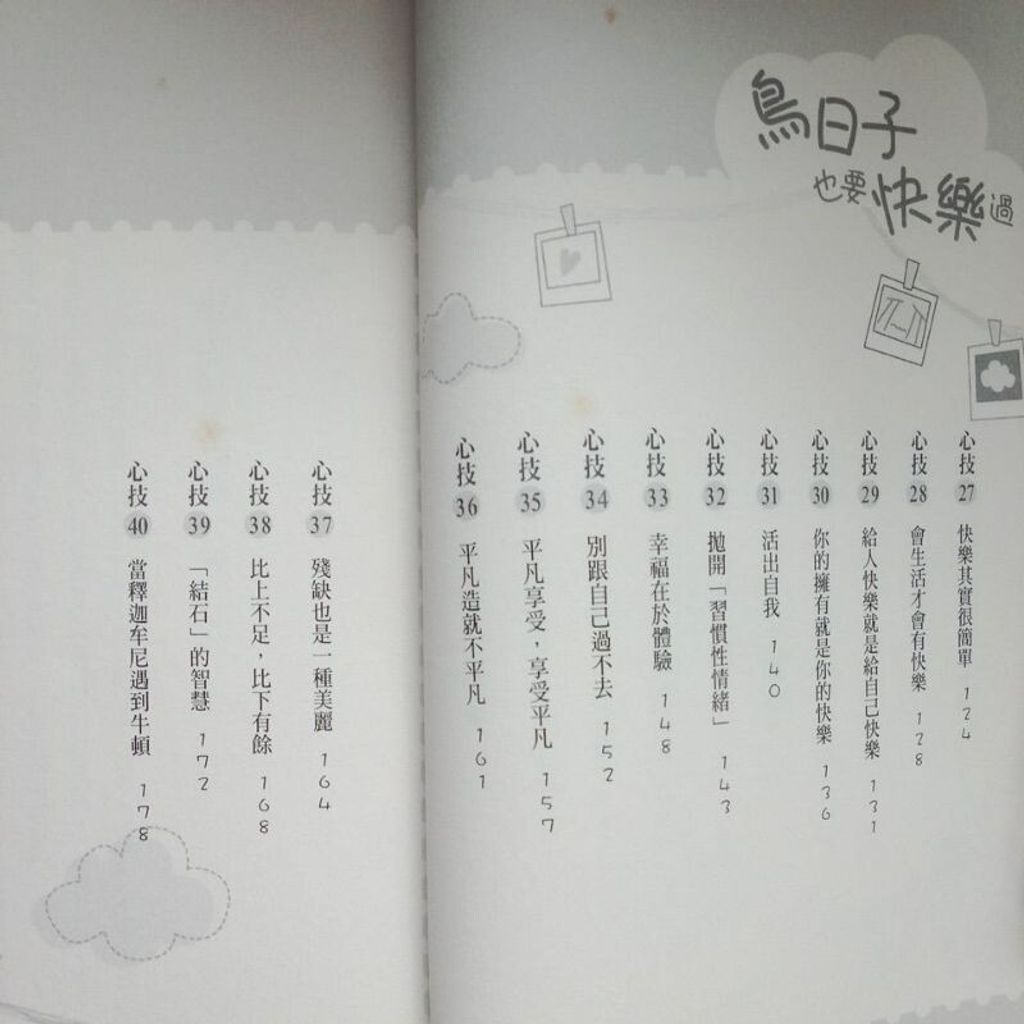 鳥日子
也要快樂過
心技27 快樂其實很簡單 124
心技28 會生活才會有快樂 128
心技29 給人快樂就是給自己快樂 131
心技30 你的擁有就是你的快樂 136
心技31 活出自我 140
心技32 拋開「習慣性情緒」 143
心技33 幸福在於體驗 148
心技34 別跟自己過不去 152
心技35 平凡享受，享受平凡 157
心技36 平凡造就不平凡 161
心技37 殘缺也是一種美麗 164
心技38 比上不足，比下有餘 168
心技39 「結石」的智慧 172
心技40 當釋迦牟尼遇到牛頓 178